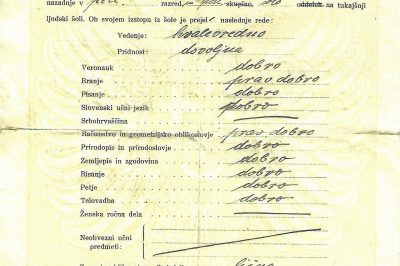 nazadnje v razred, in sicer, skupino, oddelek na tukajšnji
ljudski šoli. Ob svojem izstopu iz šole je prejel naslednje rede:
Vedenje: hvalevredno
Pridnost: dovoljna
Veronauk dobro
Branje prav dobro
Pisanje dobro
Slovenski učni jezik dobro
Srbohrvaščina
Računstvo in geometrijsko oblikoslovje prav dobro
Prirodopis in prirodoslovje dobro
Zemljepis in zgodovina dobro
Risanje dobro
Petje dobro
Telovadba dobro
Ženska ročna dela
Neobvezni učni
predmeti: